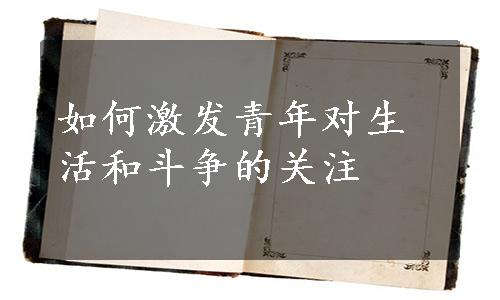 如何激发青年对生
活和斗争的关注